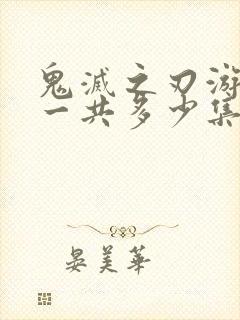 鬼滅之刃游
一共多少集
晏美華